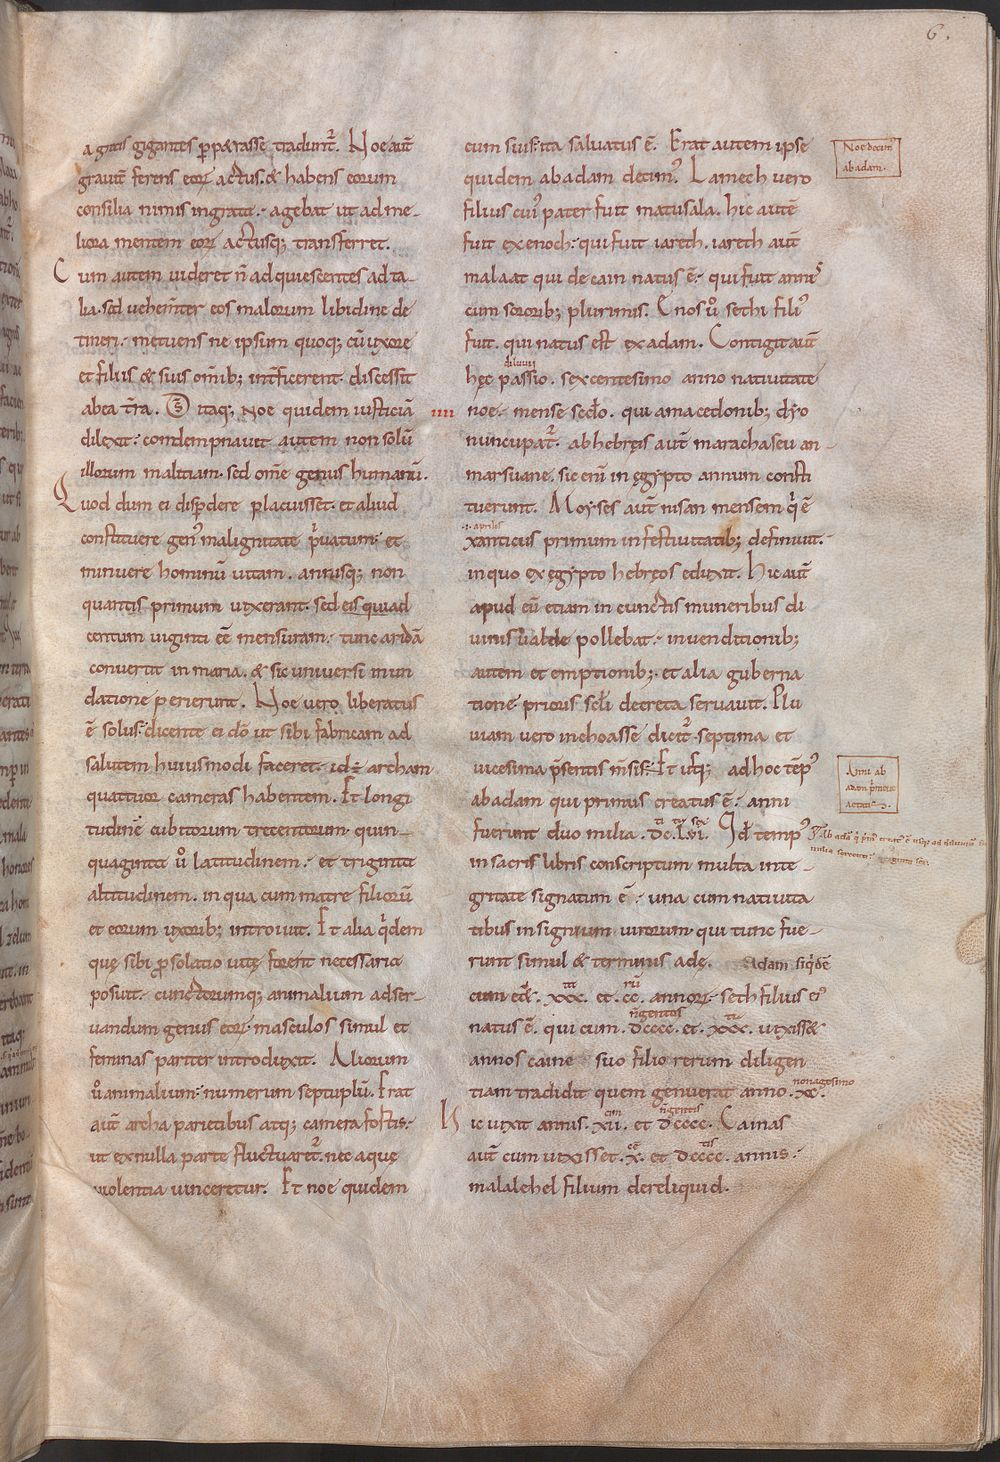 6.
a grecis gigantes ꝑpetrasse tradunt᷑. Noe aut̄
grauit̄ ferens eoꝝ actus. & habens eorum
consilia nimis ingrata. agebat ut ad me-
liora mentem eoꝝ actusq; transferret.
Cum autem uideret n̄ adquiescentes ad ta-
lia. sed uehem̄ter eos malorum libidine de
tineri. metuens ne ipsum quoq; cū uxore
et filiis & suis om̄ib; int̄ficerent. discessit
ab ea t̄ra. D̄s itaq; Noe quidem iusticiā
dilexit. condempnauit autem non solū
illorum malitiam. sed om̄e genus humanū.
Quod dum ei disꝑdere placuisset. et aliud
constituere genꝰ malignitate p̄uatum. et
minuere hominū uitam. annisq; non
quantis primum uixerant. sed eis quiad
centum uiginti eē mensuram. tunc aridā
conuertit in maria. & sic uniuersi inun
datione perierunt. Noe uero liberatus
ē solus. dicente ei dō ut sibi fabricam ad
salutem huiusmodi faceret. id ÷ archam
quattuor cameras habentem. Et longi
tudinē cubitorum trecentorum. quin-
quaginta ů latitudinem. et triginta
altitudinem. in qua cum matre filiorū
et eorum uxorib; introiuit. Et alia qͥdem
quę sibi ꝓ solatio uitę forent necessaria
posuit. cunctorumq; animalium ad ser-
uandum genus eoꝝ. masculos simul et
feminas pariter introduxit. Aliorum
ů animalium. numerum septuplū. Erat
aut̄ archa parietibus atq; camera fortis.
ut ex nulla parte fluctuaret᷑. nec aquę
uiolentia uinceretur. Et noe quidem
cum suis. ita saluatus ē. Erat autem ipse
quidem ab adam decimꝰ. Lamech uero
filius cuiꝰ pater fuit matusala. hic autē
fuit ex enoch. qui fuit iareth. iareth aut̄
malaat qui de cain natus ē. qui fuit annisͦ
cum sororib; plurimis. Enos ů sethi filiꝰ
fuit. qui natus est ex adam. Contigit aut̄
diluuii
hęc passio. sexcentesimo anno natiuitate
iiii
noe. mense secd̄o. qui a macedonib; dẏo
nuncupat᷑. ab hebręis aut̄ marachaseu an-
marsuane. sic eni in ęgypto annum consti
tuerunt. Moyses aut̄ nisan mensem qͥ ē
.i. aprilis
xanticus primum in festiuitatib; definiuit.
in quo ex ęgypto hebręos eduxit. Hic aut̄
apud eū etiam in cunctis muneribus di
uinis ualde pollebat. in uenditionib;
autem et emptionib;. et alia guberna
tione. prioris sc̄li decreta seruauit. Plu
uiam uero inchoasse dicit᷑. septima et
uicesima p̄sentis m̄sis. Et usq; ad hoc tēpꝰ
ab adam qui primus creatus ē. anni
fuerunt duo milia. dc. lvi. Id̄ tempꝰ
in sacris libris conscriptum multa inte-
gritate signatum ē. una cum natiuita
tibus insignium uirorum. qui tunc fue-
runt simul & terminus adę. Adam siqͥdē
cum &ēt. xxx. et. cc. annoꝝ. seth filius eiꝰ
natus ē. qui cum. dcccc. et. xxx. uixiss&
annos caine suo filio rerum diligen
nonagesimo
tiam tradidit quem genuerat anno. xc.
Hic uixit annis. xii. et dcccc. Cainas
aut̄ cum uixisset. x. et dcccc. annis.
malalehel filium dereliquid.
Noe decimꝰ
ab adam.
Anni ab